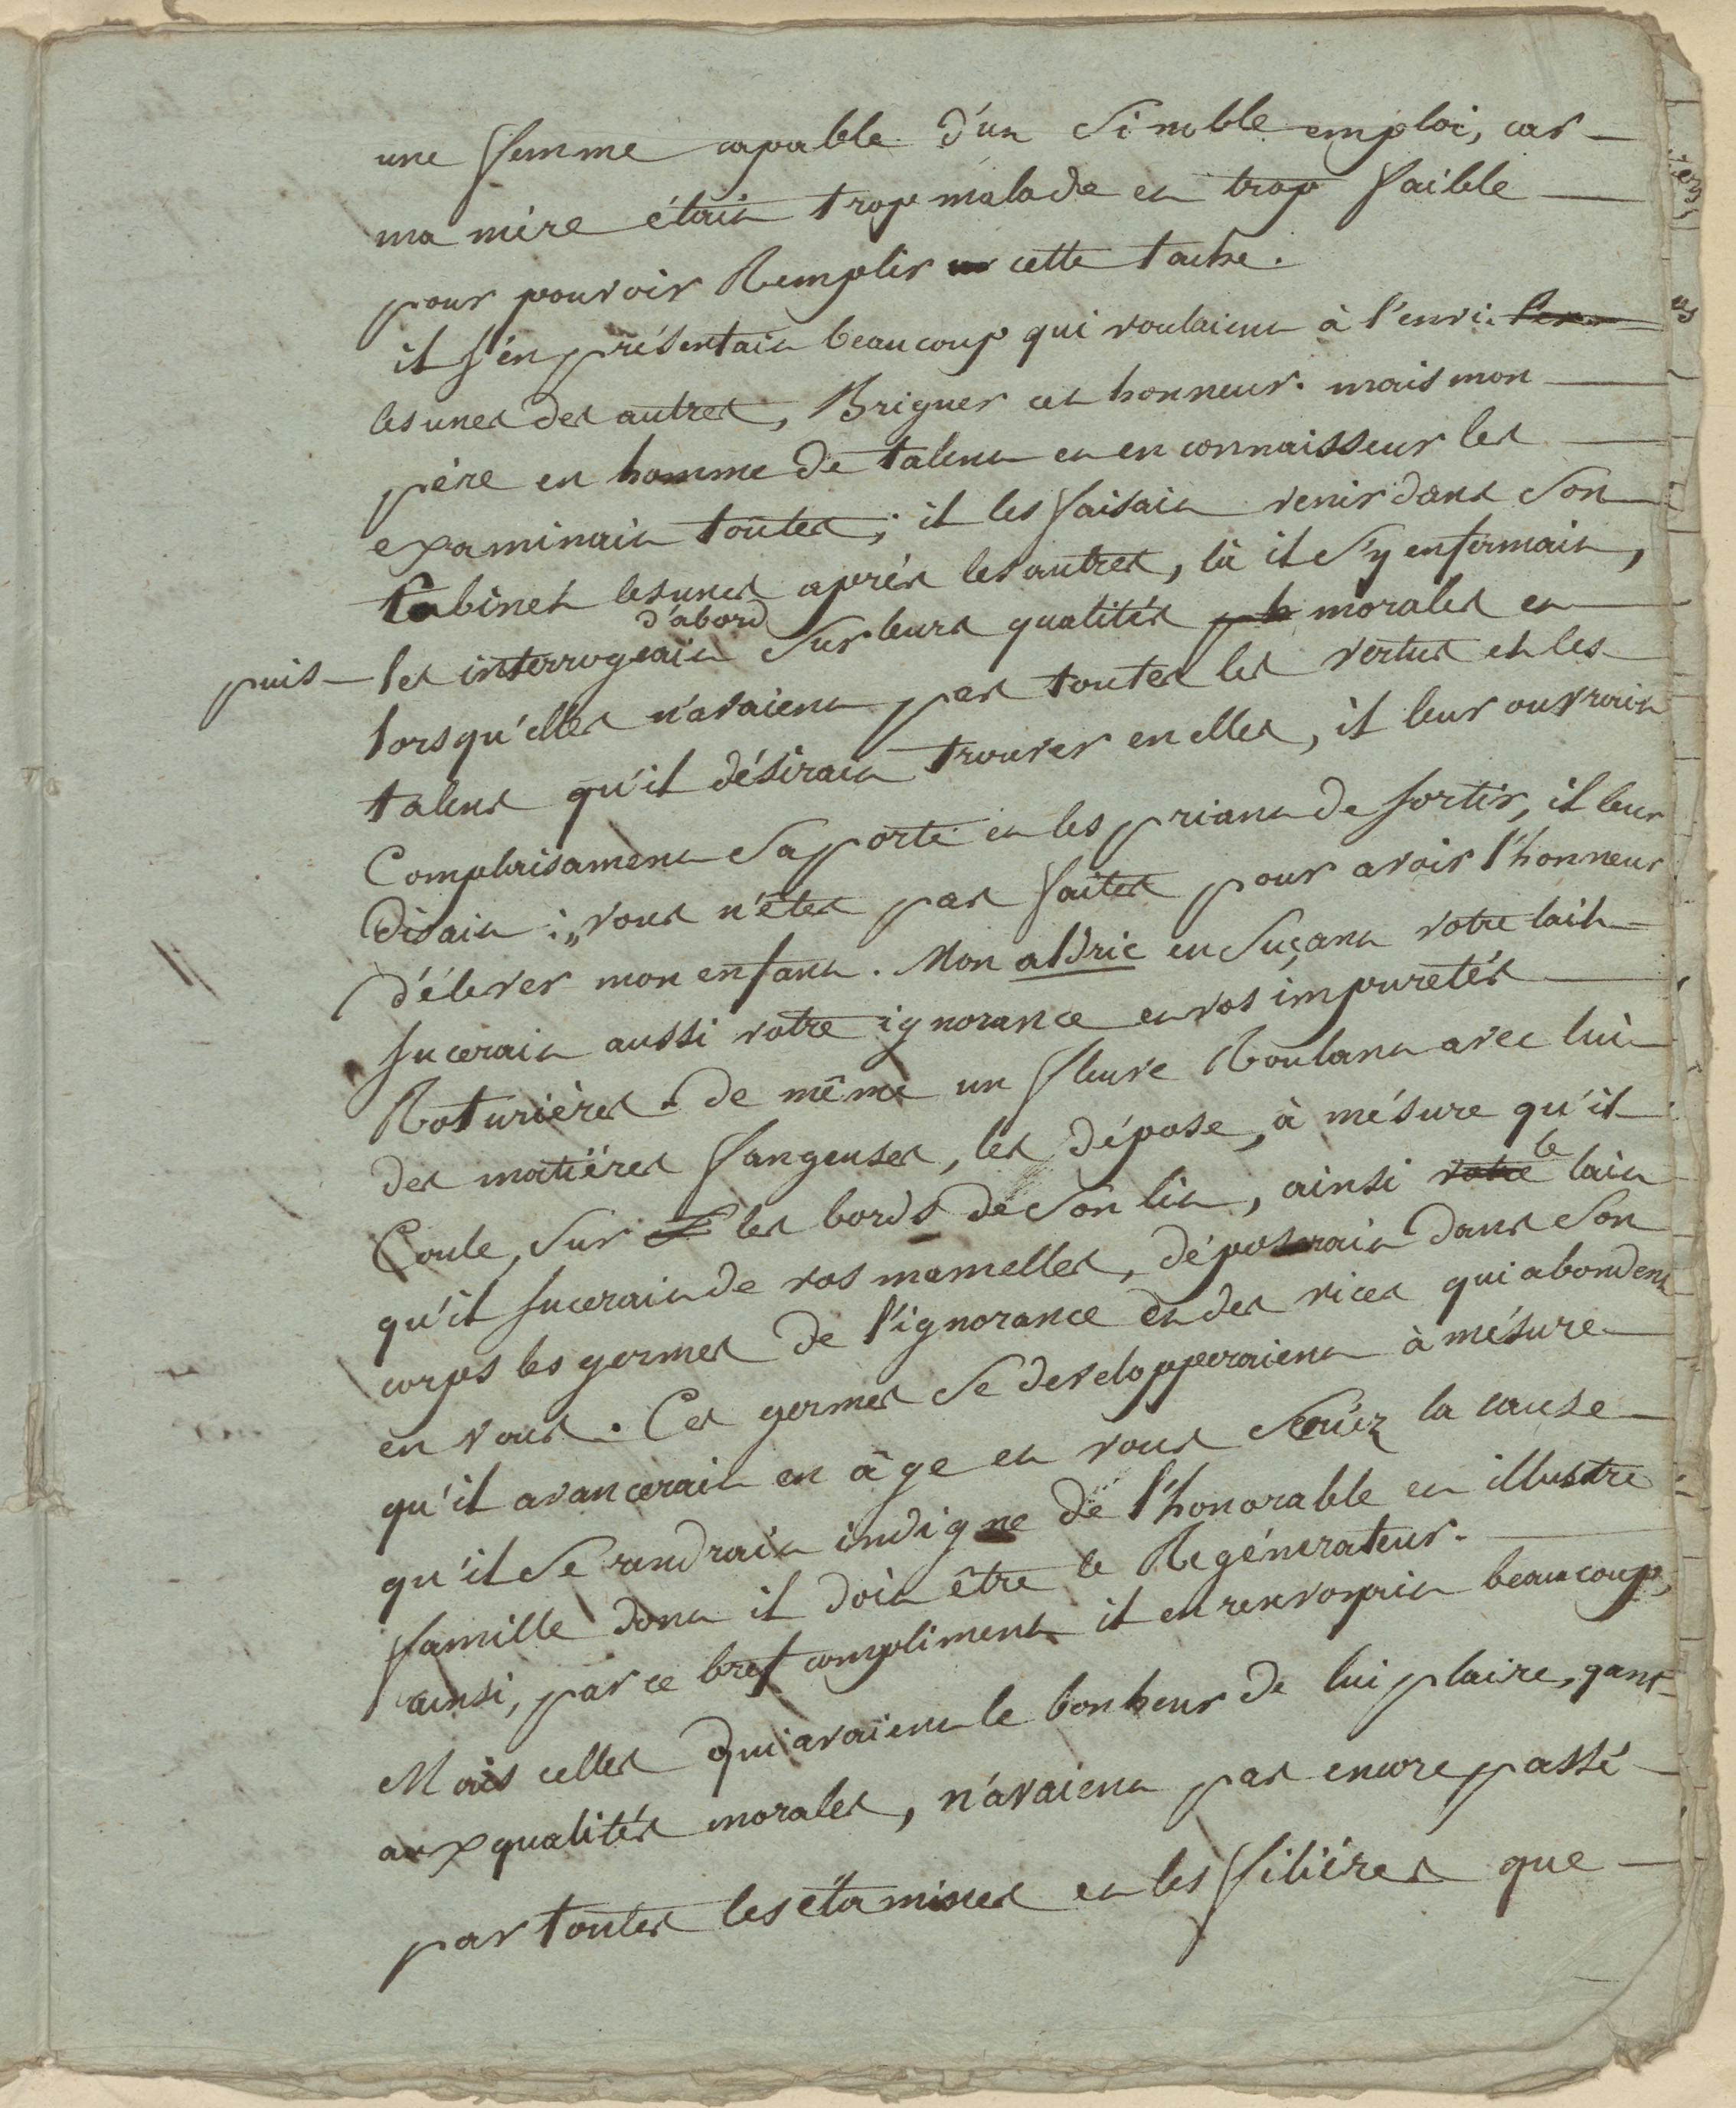 une femme capable d'un si noble emploi, car
ma mère était trop malade et trop faible
pour pouvoir Remplir cette tache.
il s'en présentait beaucoup qui voulaient à l'envi
les unes des autres, Briguer cet honneur. mais mon
père en homme de talent et en connaisseur les
examinait toutes; il les faisait venir dans son
Cabinet les unes après les autres, là il s'y enfermait,
d'abord
puis les interrogeait sur leurs qualités ph morales et
lorsqu'elles n'avaient pas toutes les vertus et les
talens qu'il désirait trouver en elles, il leur ouvrait
Complaisament sa porte et les priant de sortir, il leur
Disait : „vous n'êtes pas faites pour avoir l'honneur
d'élever mon enfant. Mon aldric en suçant votre lait
suceroit aussi votre ignorance et vos impuretés
Roturières. De même un fleuve Roulant avec lui
des matières fangeuses, les dépose, à mésure qu'il
Coule, sur les bords de son lit, ainsi votre le lait
qu'il sucerait de vos mamelles, déposerait dans son
corps les germes de l'ignorance et des vices qui abondent
en vous. Ces germes se developperaient à mésure
qu'il avancerait en âge et vous seriez la cause
qu'il se rendrait indigne de l'honorable et illustre
famille dont il doit être le Regénérateur.
ainsi, par ce bref compliment il en renvoyait beaucoup,
Mais celles qui avaient le bonheur de lui plaire, quant
aux qualités morales, n'avaient pas encore passé
par toutes les étamines et les filières que